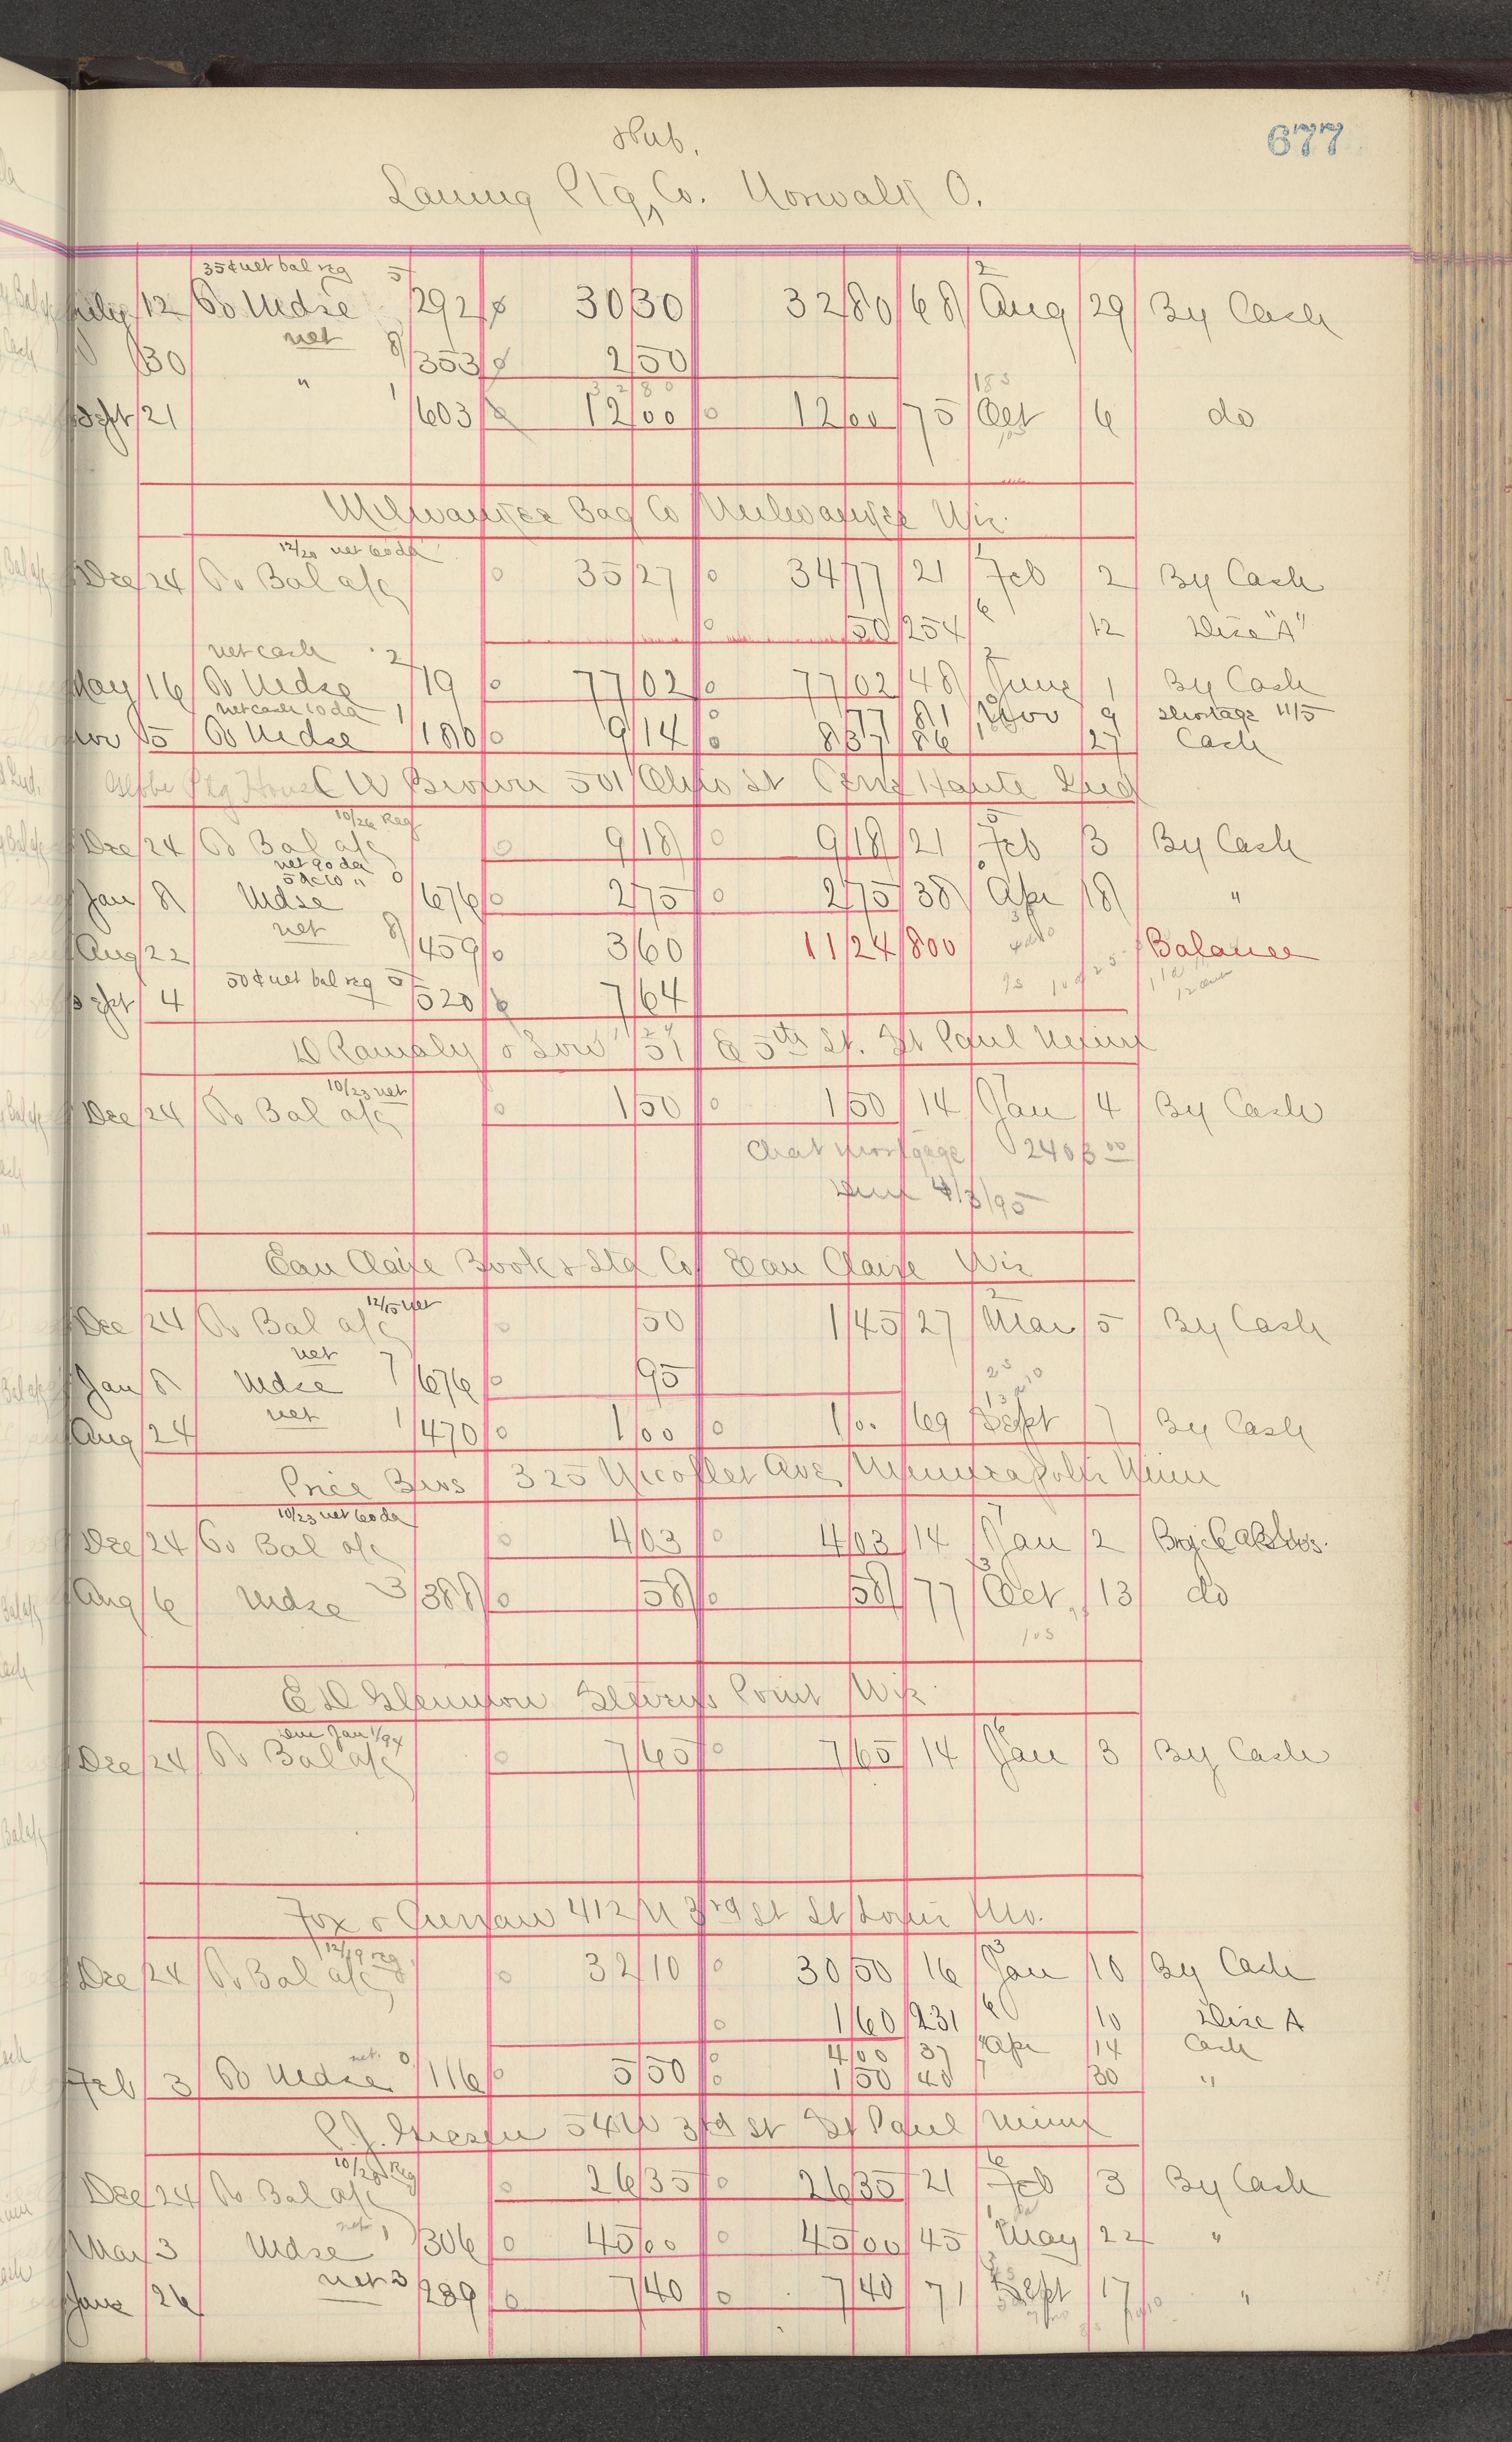 677
Pub.
Laning Ptg, Co. Norwalk O.
35¢ net bal reg 5 2
July 12 To Mdse 292 30 30 32 80 68 Aug 29 By Cash
30 net 8 353 2 50
32 80 185
Sept 21 " 1 603 12 00 0 12 00 75 Oct 6 do
Milwaukee Bag Co Milwaukee Wis.
12/20 net 60 da
Dec 24 To Bal a/c 0 35 27 0 34 77 21 Feb 2 By Cash
0 50 254 6 12 Disc "A"
net cash 2 2
May 16 To Mdse 719 0 77 02 0 77 02 48 June 1 By Cash
net cash 10 da 1 0 77 81 Nov 9 shortage 11/5
Nov 5 To Mdse 180 0 9 14 0 8 37 86 27 Cash
Globe Ptg House C W Brown 501 Ohio St Terre Haute Ind
10/26 Reg
Dec 24 To Bal a/c 0 9 18 0 9 18 21 Feb 3 By Cash
net 90 da
5 & 10 " 0
Jan 8 Mdse 676 0 2 75 0 2 75 38 Apr 18 "
Aug 22 net 8 459 0 3 60 11 24 800 Balance
50¢ net bal reg 5
Sept 4 520 7 64
11 24
D Ramaly & Son 51 E 5th St. St Paul Minn
10/23 net
Dec 24 To Bal a/c 0 1 50 0 1 50 14 Jan 4 By Cash
Chat mortgage 2403 00
due 4/3/95
Eau Claire Book & Sta Co Eau Claire Wis
12/15 net 2
Dec 24 To Bal a/c 0 50 1 45 27 Mar 5 By Cash
Jan 8 Mdse net 7 676 0 95
Aug 24 net 1 470 0 1 00 0 1 0. 69 Sept 7 By Cash
Price Bros 325 Nicollet Ave Minneapolis Minn
10/23 net 60 da
Dec 24 To Bal a/c 0 4 03 0 4 03 14 Jan 2
Aug 6 Mdse 3 388 0 58 0 58 77 Oct 13 do
105
E D Glennon Stevens Point Wis
due Jan 1/94
Dec 24 To Bal a/c 0 7 65 0 7 65 14 Jan 3 By Cash
Fox & Curran 412 N 3rd St St Louis Mo.
12/19 reg
Dec 24 To Bal a/c 0 32 10 0 30 50 16 Jan 10 By Cash
0 1 60 231 6 10 Disc A
0 4 00 37 Apr 14 Cash
Feb 3 To Mdse net. 0 116 0 5 50 0 1 50 40 7 30 "
P.J. Giesen 54 W 3rd St St Paul Minn
10/28 Reg
Dec 24 To Bal a/c 0 26 35 0 26 35 21 Feb 3 By Cash
Mar 3 Mdse net 1 306 0 45 00 0 45 00 45 May 22 "
June 26 net 3 289 0 7 40 0 7 40 71 Sept 17 "